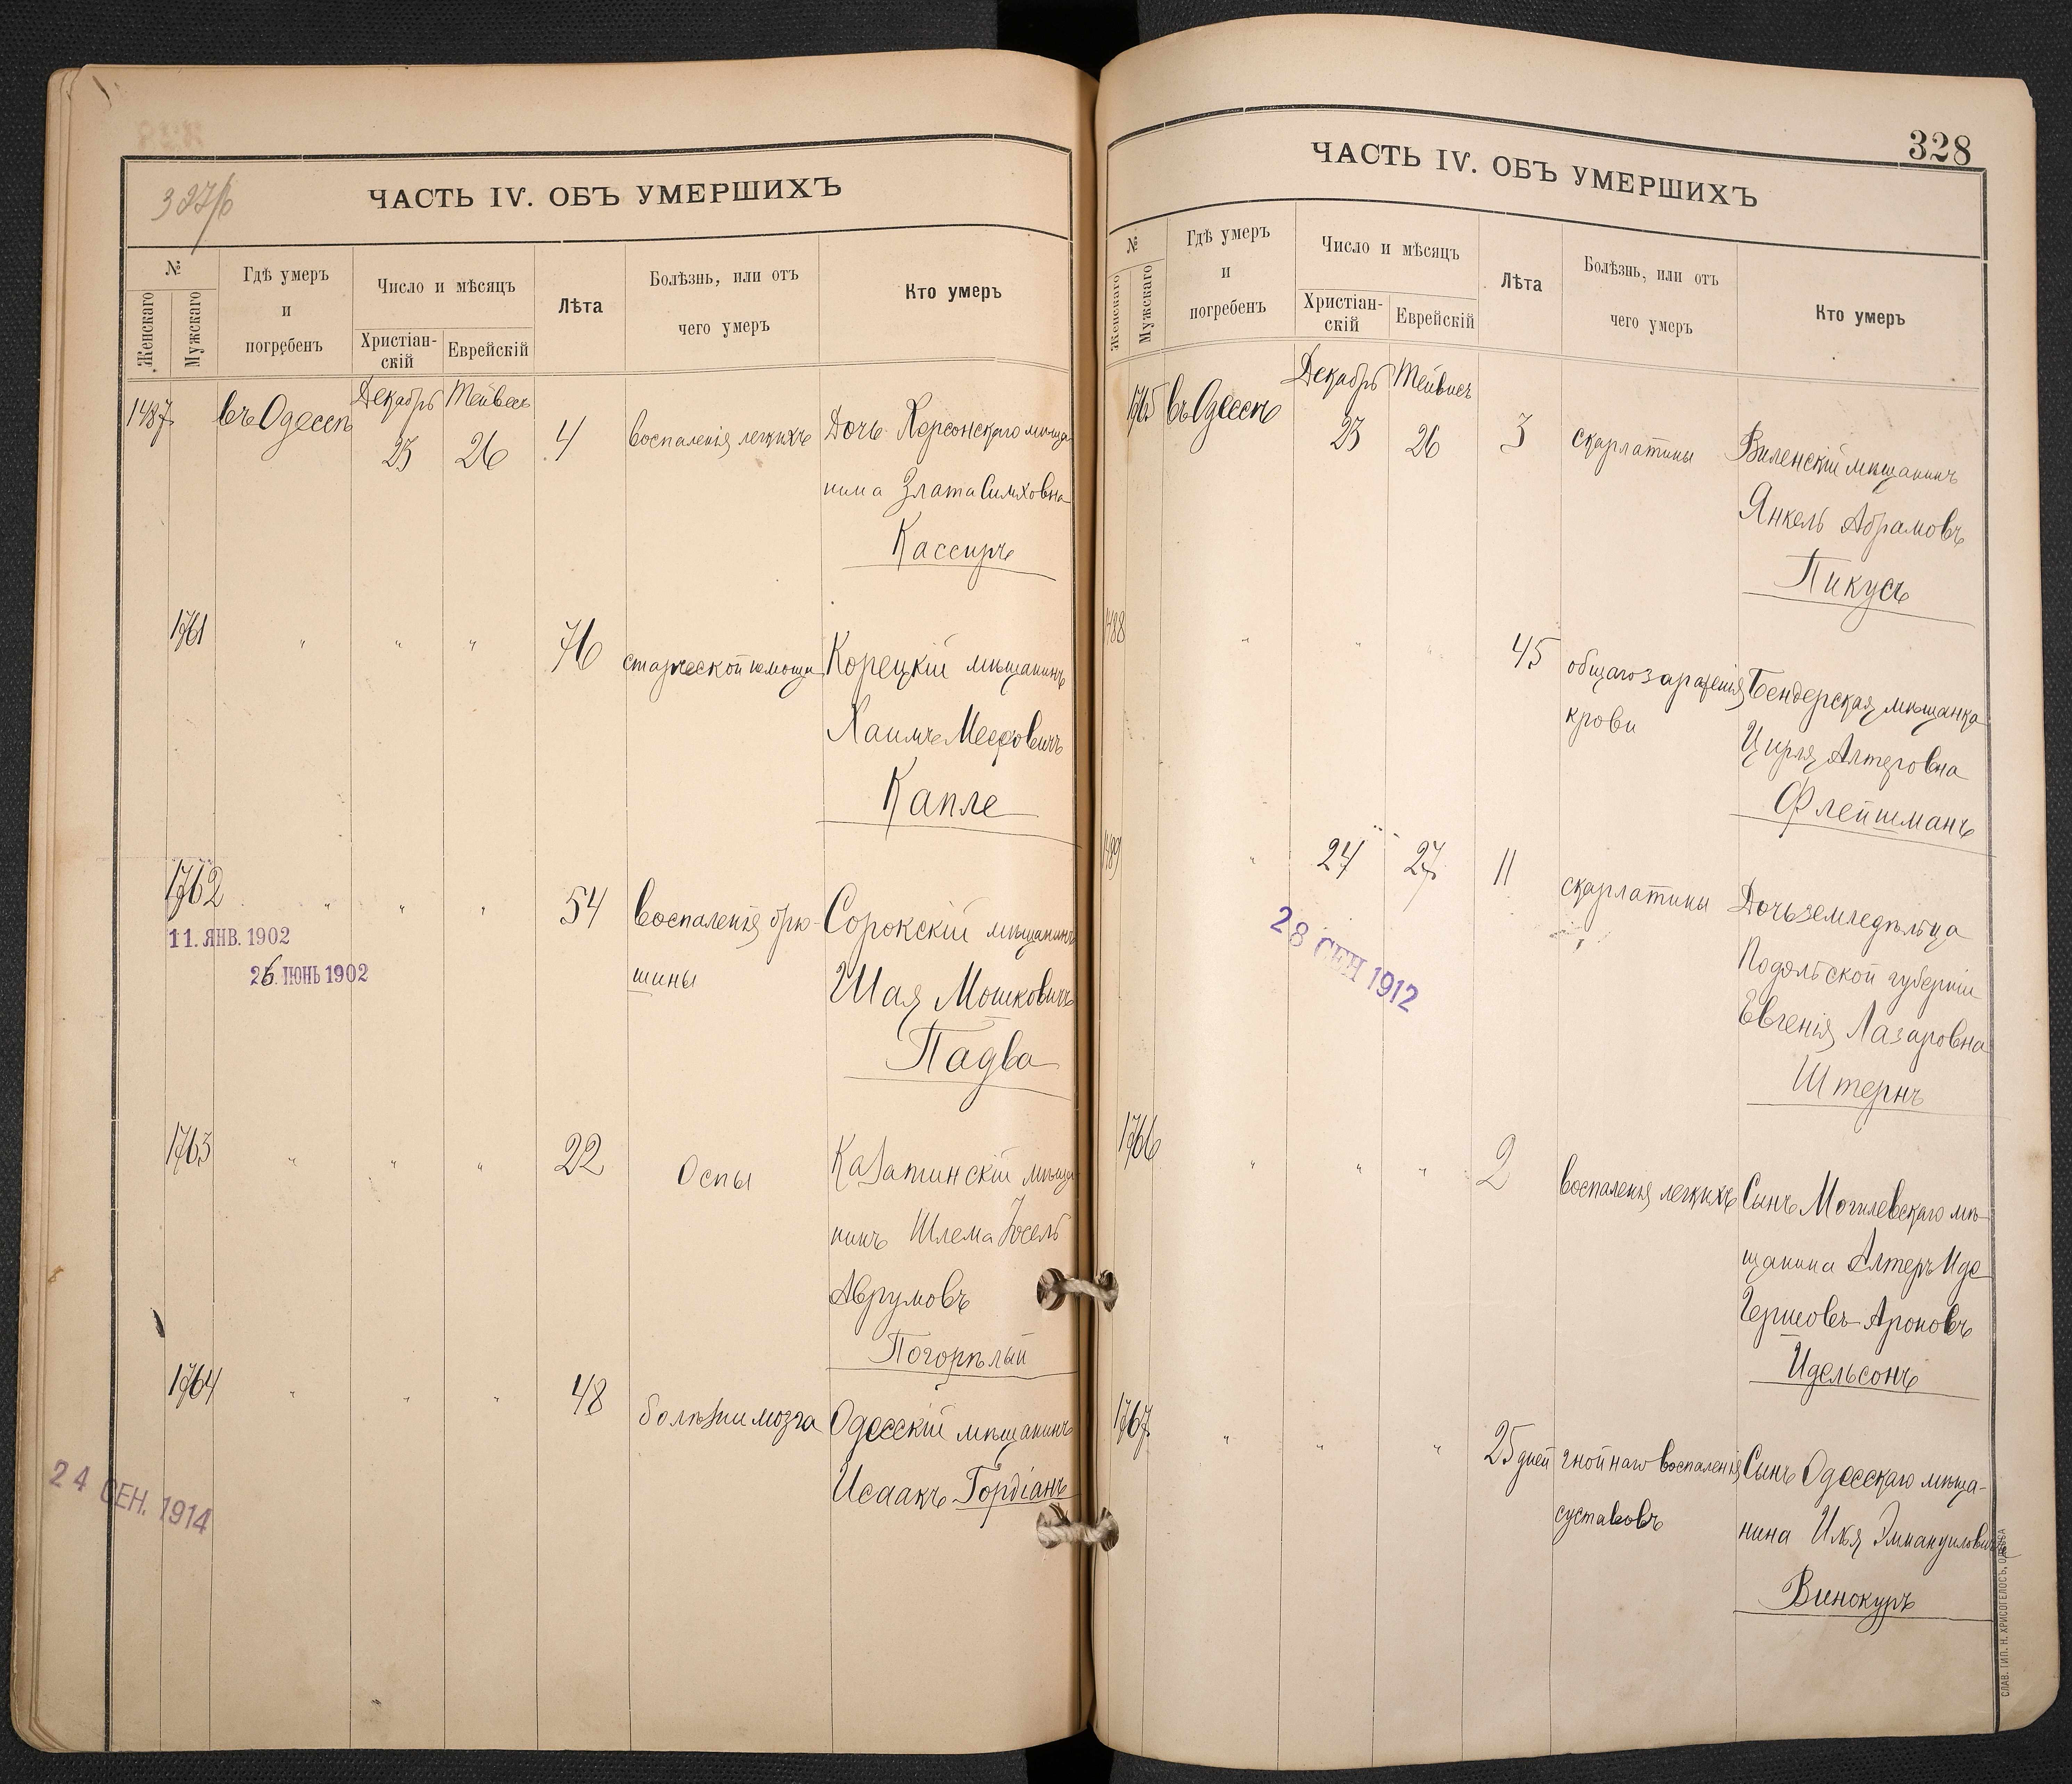 327/б
ЧАСТЬ IV. ОБЪ УМЕРШИХЪ
№
Женскаго
Мужскаго
Гдѣ умеръ
и
погребенъ
Число и мѣсяцъ
Христіан-
скій
Еврейскій
Лѣта
Болѣзнь, или отъ
чего умеръ
Кто умеръ
1487
въ Одессѣ
Декабрь
23
Тейвесъ
26
4
воспаленія легкихъ
Дочь Херсонскаго мѣща
нина Злата Симховна
Кассиръ
1761
" " "
76
старческой немощи
Корецкій мѣщанинъ
Хаимъ Месровичъ
Капле
1762
" " "
54
воспаленія брю-
шины
Сорокскій мѣщанинъ
Шая Мошковичъ
Падва
11. ЯНВ. 1902
26. ІЮНЬ 1902
1763
" " "
22
Оспы
Казатинскій мѣща
нинъ Шлема Іосель
Аврумовъ
Погорѣлый
1764
" " "
48
болѣзни мозга
Одесскій мѣщанинъ
Исаакъ Гордіанъ
24 СЕН. 1914
328
ЧАСТЬ IV. ОБЪ УМЕРШИХЪ
№
Женскаго
Мужскаго
Гдѣ умеръ
и
погребенъ
Число и мѣсяцъ
Христіан-
скій
Еврейскій
Лѣта
Болѣзнь, или отъ
чего умеръ
Кто умеръ
1765
въ Одессѣ
Декабрь
23
Тейвисъ
26
3
скарлатины
Виленскій мѣщанинъ
Янкель Абрамовъ
Пикусъ
1488
" " "
45
общаго зараженія
крови
Бендерская мѣщанка
Цирля Алтеровна
Флейшманъ
1489
"
24
27
11
скарлатины
Дочь земледѣльца
Подольской губерніи
Евгенія Лазаровна
Штернъ
28 СЕН 1912
1766
" " "
2
воспаленія легкихъ
Сынъ Могилевскаго мѣ-
щанина Алтеръ Иде
Гершовъ Ароновъ
Идельсонъ
1767
" " "
25 дней
гнойнаго воспаленія
суставовъ
Сынъ Одесскаго мѣща-
нина Илья Эммануиловичъ
Винокуръ
СЛАВ. ТИП. Н. ХРИСОГЕЛОСЪ, ОДЕССА